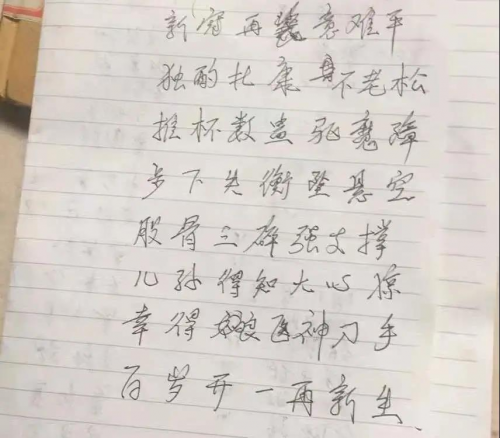 新府再袭意难平
独酌杜康身不老松
推杯数盅驱魔障
步下失衡坠悬空
股骨三碎强支撑
儿孙得知大心惊
幸得良医神刀手
百岁开一再新生